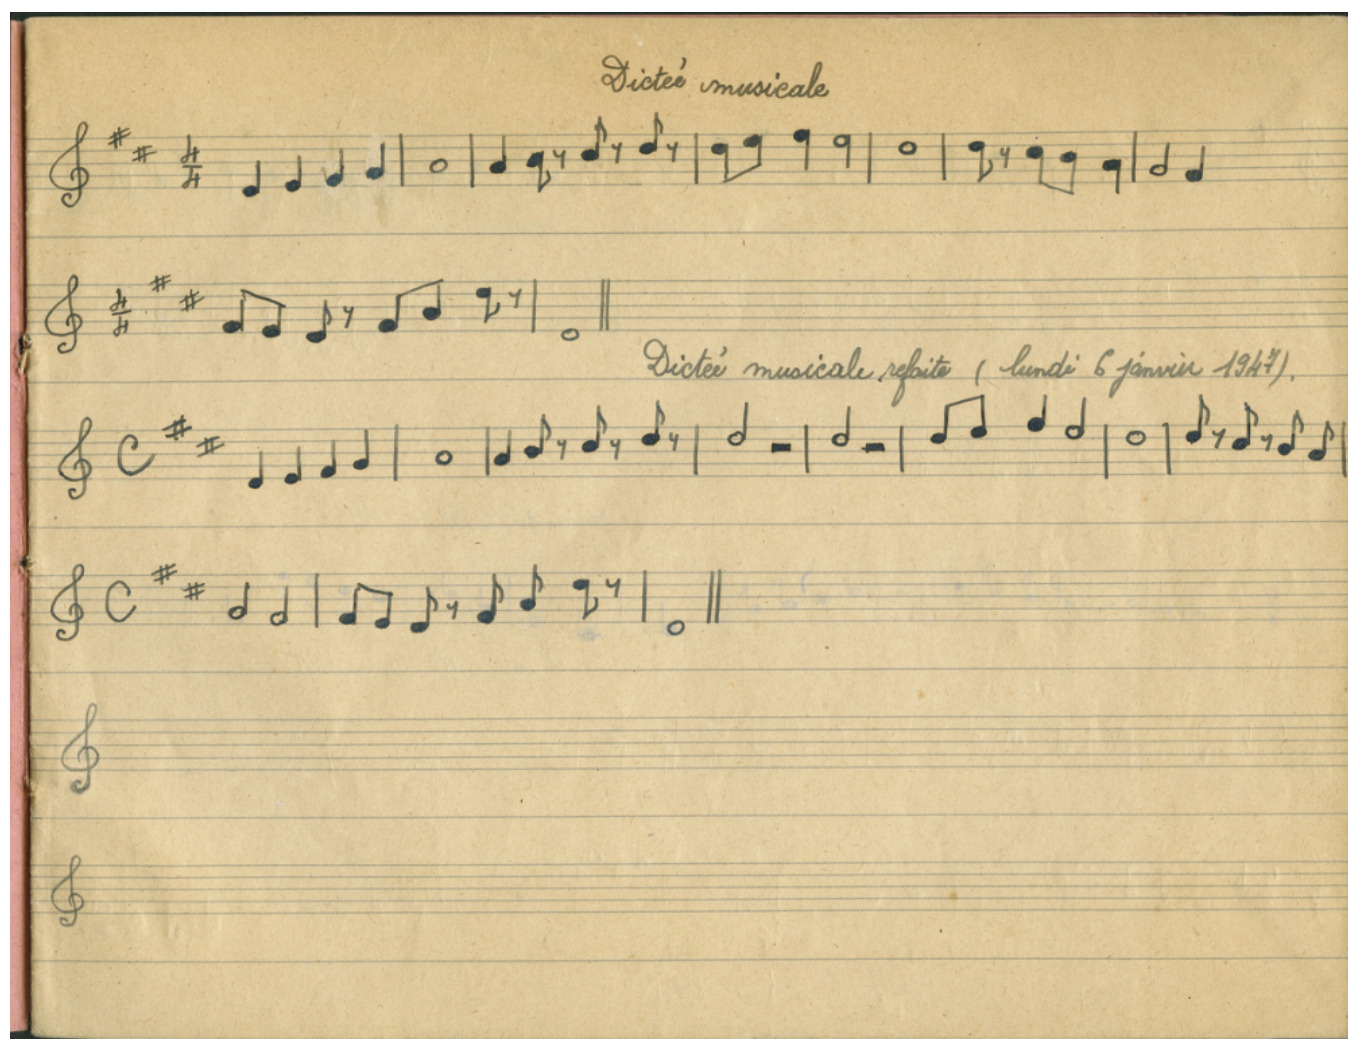 Dicteé musicale
4/4
4/4
Dicteé musicale refaite ( lundi 6 janvier 1947).
C
C